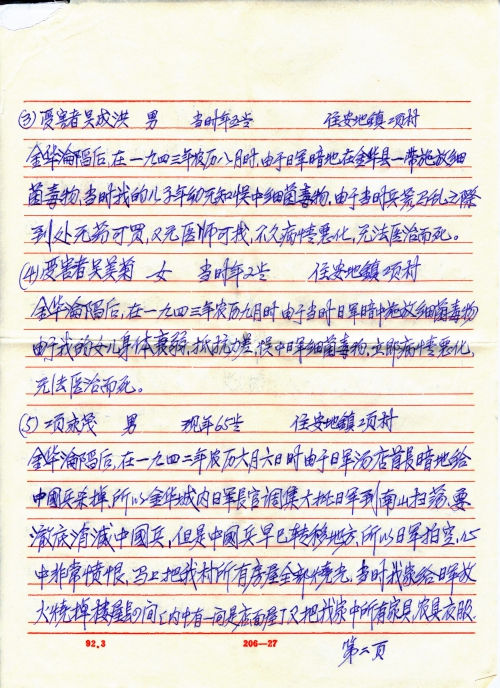 (3) 受害者吴成洪 男 当时年五岁 住安地镇项村
金华沦陷后,在一九四三年农历八月时,由于日军暗地在金华县一带施放细
菌毒物,当时我的儿子年幼无知误中细菌毒物,由于当时兵荒马乱之际
到处无药可买,又无医师可找,不久病情恶化,无法医治而死。
(4) 受害者吴美菊 女 当时年2岁 住安地镇项村
金华沦陷后,在一九四三年农历九月时由于当时日军暗中施放细菌毒物
由于我的女儿身体衰弱,抵抗力差,误中日军细菌毒物,立即病情恶化,
无法医治而死。
(5) 项 茂 男 现年65岁 住安地镇项村
金华沦陷后,在一九四二年农历六月六日时由于日军汤店首長暗地给
中國兵杀掉,所以金华城内日軍長官調集大批日军到南山扫荡,要
澈底消滅中國兵,但是中國兵早已转移地方,所以日军拍空,心
中非常愤恨,马上把我村所有房屋全部燒光,当时我家给日军放
火燒掉楼屋 间[内中有一间是店面屋]又把我家中所有家具,农具衣服
92.3 206—27
第二页